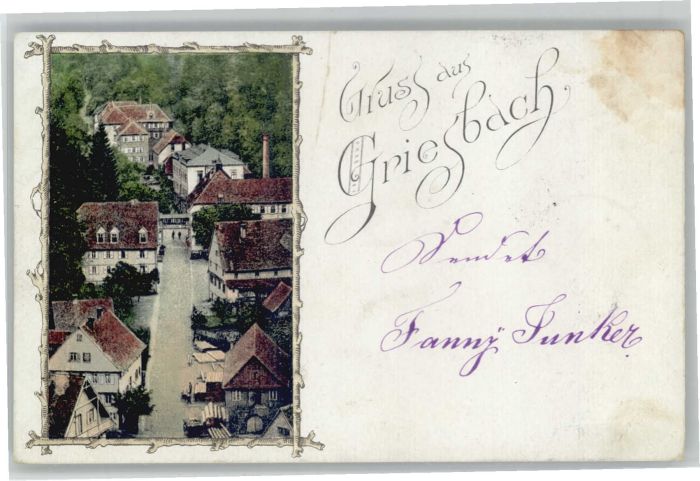 Gruss aus
Griesbach
Sendet
Fanny Junker